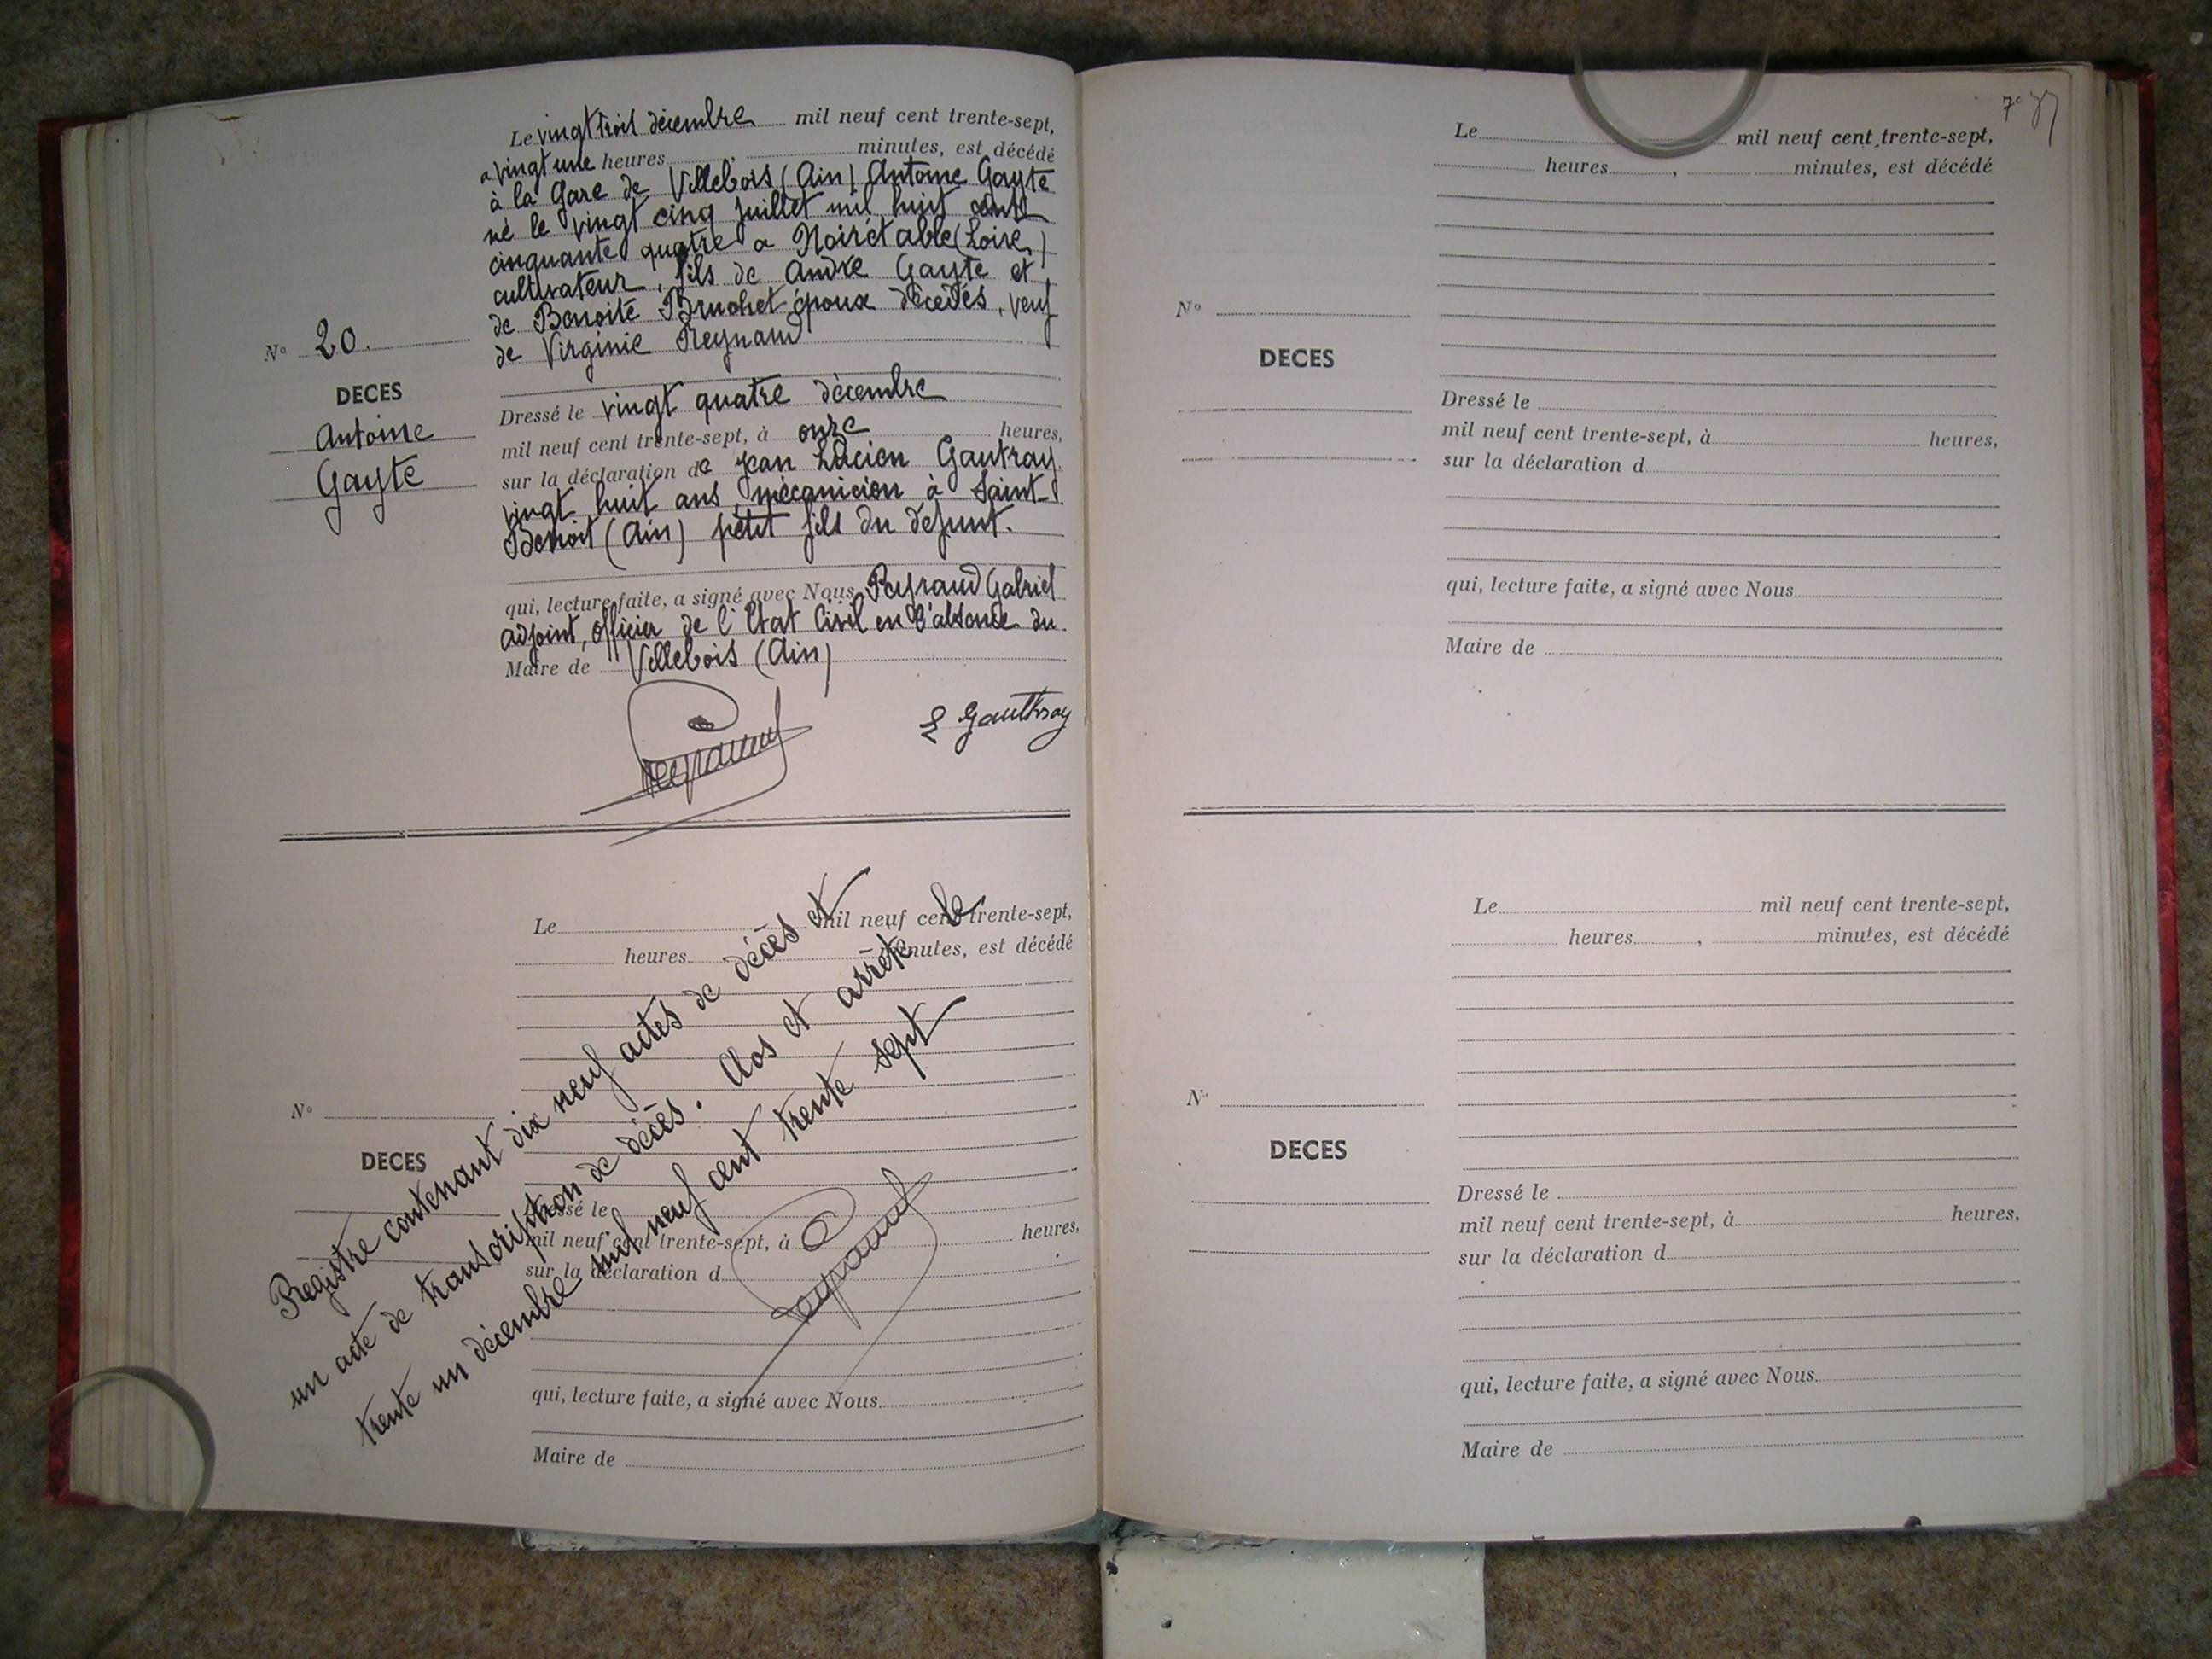 Le vingt trois décembre mil neuf cent trente-sept,
a vingt une heures , minutes, est décédé
à la Gare de Villebois (Ain) Antoine Gayte
né le vingt cinq juillet mil huit cent
cinquante quatre a Noirétable (Loire)
cultivateur, fils de André Gayte et
de Benoite Bruchet époux décédés, veuf
de Virginie Reynaud
N° 20.
DECES
Antoine
Gayte
Dressé le vingt quatre décembre
mil neuf cent trente-sept, à onze heures,
sur la déclaration de Jean Lucien Gautray
vingt huit ans, mécanicien à Saint
Benoit (Ain) petit fils du défunt.
qui, lecture faite, a signé avec Nous Peyraud Gabriel
adjoint, officier de l'Etat Civil en l'absence du
Maire de Villebois (Ain)
Peyraud
L Gauthray
Le mil neuf cent trente-sept,
heures minutes, est décédé
N°
DECES
Dressé le
mil neuf cent trente-sept, à heures,
sur la déclaration d
qui, lecture faite, a signé avec Nous
Maire de
Registre contenant dix neuf actes de décès et
un acte de transcription de décès. Clos et arrêté le
trente un décembre mil neuf cent trente sept
Peyraud
Le mil neuf cent trente-sept,
heures , minutes, est décédé
N°
DECES
Dressé le
mil neuf cent trente-sept, à heures,
sur la déclaration d
qui, lecture faite, a signé avec Nous
Maire de
Le mil neuf cent trente-sept,
heures , minutes, est décédé
N°
DECES
Dressé le
mil neuf cent trente-sept, à heures,
sur la déclaration d
qui, lecture faite, a signé avec Nous
Maire de